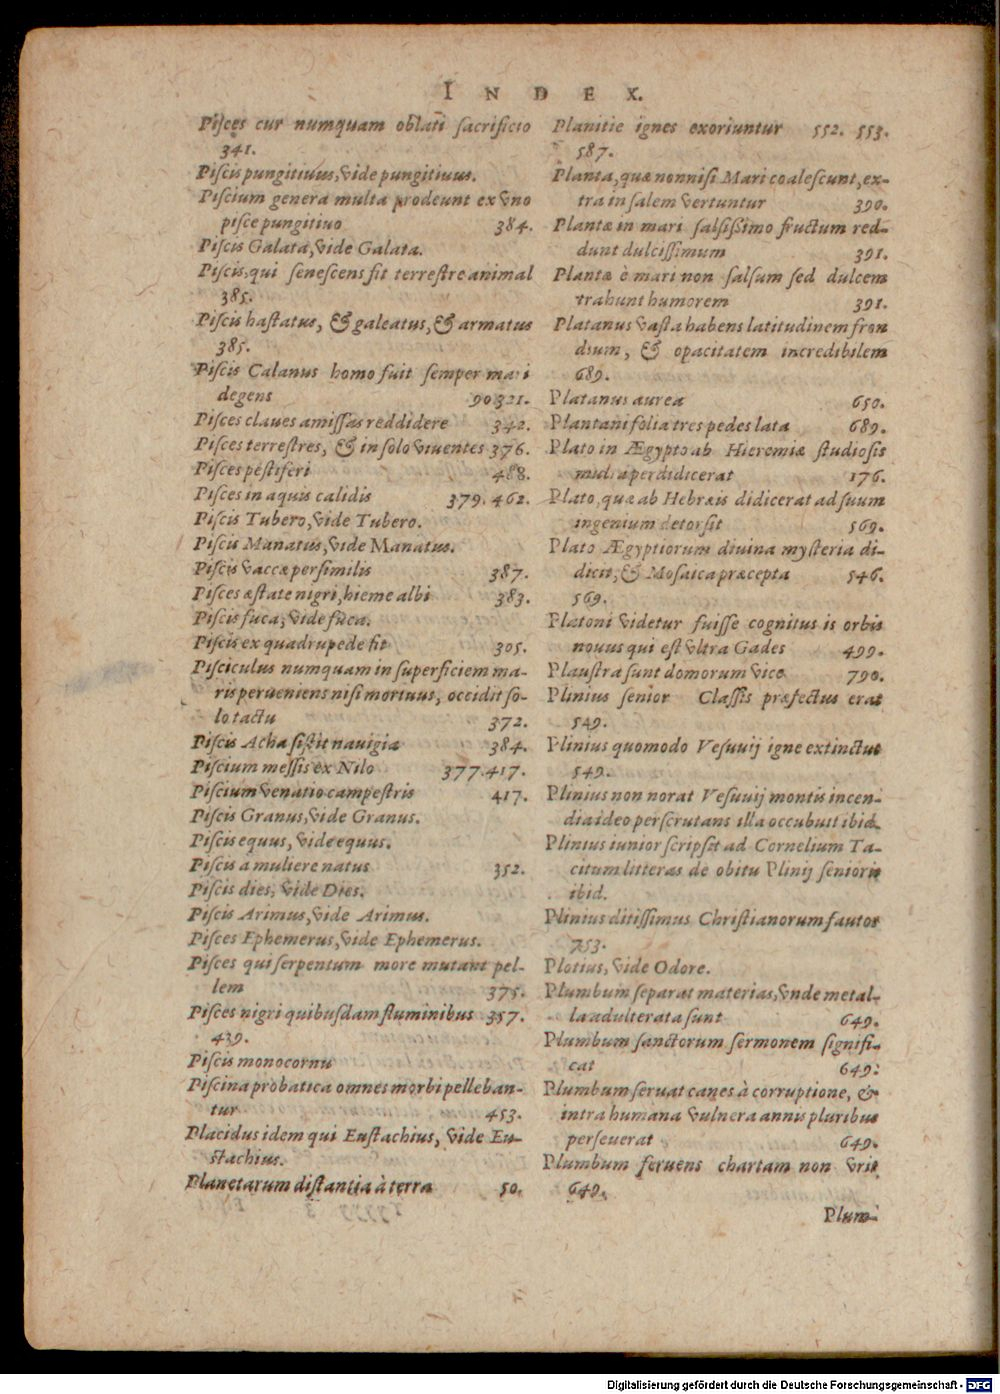 INDEX.
Piſces cur numquam oblati ſacrificio
341.
Piſcis pungitiuus, vide pungitiuus.
Piſcium genera multa prodeunt ex vno
piſce pungitiuo 384.
Piſcis Galata, vide Galata.
Piſcis, qui ſeneſcens fit terreſtre animal
385.
Piſcis haſtatus, & galeatus, & armatus
385.
Piſcis Calanus homo fuit ſemper mari
degens 90 321.
Piſces claues amiſſas reddidere 342.
Piſces terreſtres, & in ſolo viuentes 376.
Piſces peſtiferi 488.
Piſces in aquis calidis 379. 462.
Piſcis Tubero, vide Tubero.
Piſcis Manatus, vide Manatus.
Piſcis vaccæ perſimilis 387.
Piſces æſtate nigri, hieme albi 383.
Piſcis fuca, vide fuca.
Piſcis ex quadrupede fit 305.
Piſciculus numquam in ſuperficiem ma-
ris perueniens niſi mortuus, occidit ſo-
lo tactu 372.
Piſcis Acha ſiſtit nauigia 384.
Piſcium meſſis ex Nilo 377. 417.
Piſcium venatio campeſtris 417.
Piſcis Granus, vide Granus.
Piſcis equus, vide equus.
Piſcis a muliere natus 352.
Piſcis dies, vide Dies.
Piſcis Arimus, vide Arimus.
Piſces Ephemerus, vide Ephemerus.
Piſces qui ſerpentum more mutant pel-
lem 375.
Piſces nigri quibuſdam fluminibus 357.
439.
Piſcis monocornu
Piſcina probatica omnes morbi pelleban-
tur 453.
Placidus idem qui Euſtachius, vide Eu-
ſtachius.
Planetarum diſtantia à terra 50.
Planitie ignes exoriuntur 552. 553.
587.
Planta, quæ non niſi Mari coaleſcunt, ex-
tra in ſalem vertuntur 390.
Plantæ in mari ſalſiſſimo fructum red-
dunt dulciſſimum 391.
Plantæ è mari non ſalſum ſed dulcem
trahunt humorem 391.
Platanus vaſta habens latitudinem fron
dium, & opacitatem incredibilem
689.
Platanus aurea 650.
Plantani folia tres pedes lata 689.
Plato in Ægypto ab Hieremiæ ſtudioſis
multa perdidicerat 176.
Plato, quæ ab Hebræis didicerat ad ſuum
ingenium detorſit 569.
Plato Ægyptiorum diuina myſteria di-
dicit, & Moſaica præcepta 546.
569.
Platoni videtur fuiſſe cognitus is orbis
nouus qui eſt vltra Gades 499.
Plauſtra ſunt domorum vice 790.
Plinius ſenior Claſſis præfectus erat
549.
Plinius quomodo Veſuuij igne extinctus
549.
Plinius non norat Veſuuij montis incen-
dia ideo perſcrutans illa occubuit ibid.
Plinius iunior ſcripſit ad Cornelium Ta-
citum litteras de obitu Plinij ſenioris
ibid.
Plinius ditiſſimus Chriſtianorum fautor
753.
Plotius, vide Odore.
Plumbum ſeparat materias, vnde metal-
la adulterata ſunt 649.
Plumbum ſanctorum ſermonem ſignifi-
cat 649.
Plumbum ſeruat canes à corruptione, &
intra humana vulnera annis pluribus
perſeuerat 649.
Plumbum feruens chartam non vrit
649.
Plum-
Digitalisierung gefördert durch die Deutsche Forschungsgemeinschaft - DFG